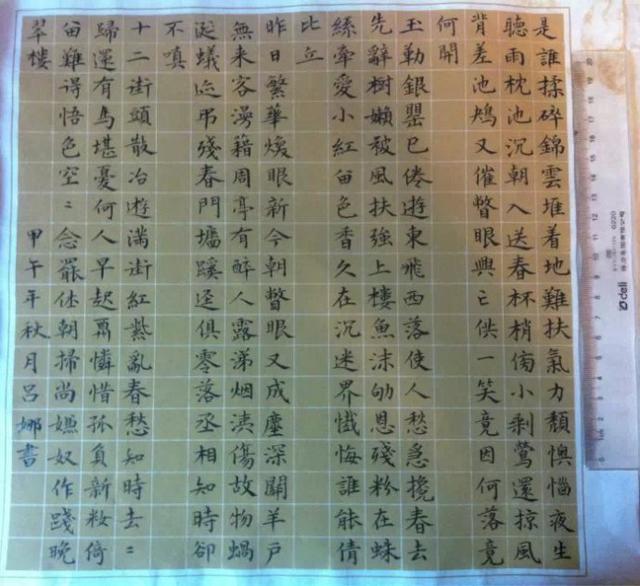 是誰揉碎錦雲堆着地難扶氣力頹懊惱夜生
聽雨枕池沉朝入送春杯梢傍小剩鶯還掠風
背差池鴆又催瞥眼興亡供一笑竟因何落竟
何開
玉勒銀罌已倦遊東飛西落使人愁急攙春去
先辭樹嬾被風扶強上樓魚沫劬恩殘粉在蛛
絲牽愛小紅留色香久在沉迷界懺悔誰能倩
比丘
昨日繁華煥眼新今朝瞥眼又成塵深關羊戶
無来客漫藉周亭有醉人露涕烟洟傷故物蝸
涎蟻迹弔殘春門墻蹊逕俱零落丞相知時卻
不嗔
十二街頭散冶遊滿街紅紫亂春愁知時去〻
歸還有馬堪憂何人早起憐惜孤負新粧倚
留難得悟色空〻念罷休朝掃尚嫌奴作踐晚
翠樓
甲午年秋月呂娜書
deli
0220